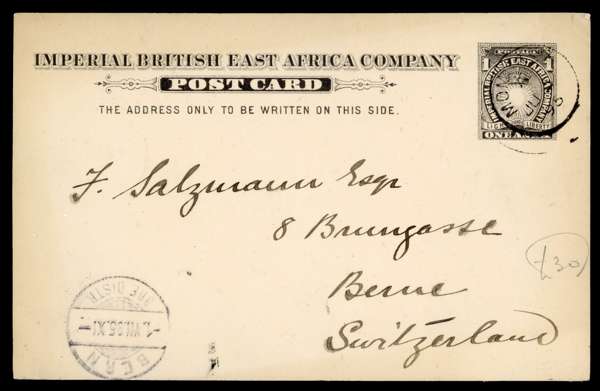 IMPERIAL BRITISH EAST AFRICA COMPANY
POST CARD
THE ADDRESS ONLY TO BE WRITTEN ON THIS SIDE.
POSTAGE
1 1
IMPERIAL BRITISH EAST AFRICA COMPANY
LIGHT LIBERTY
ONE ANNA
F. Salzmann Esqr
8 Brungasse
Berne
Switzerland
£30
BERN